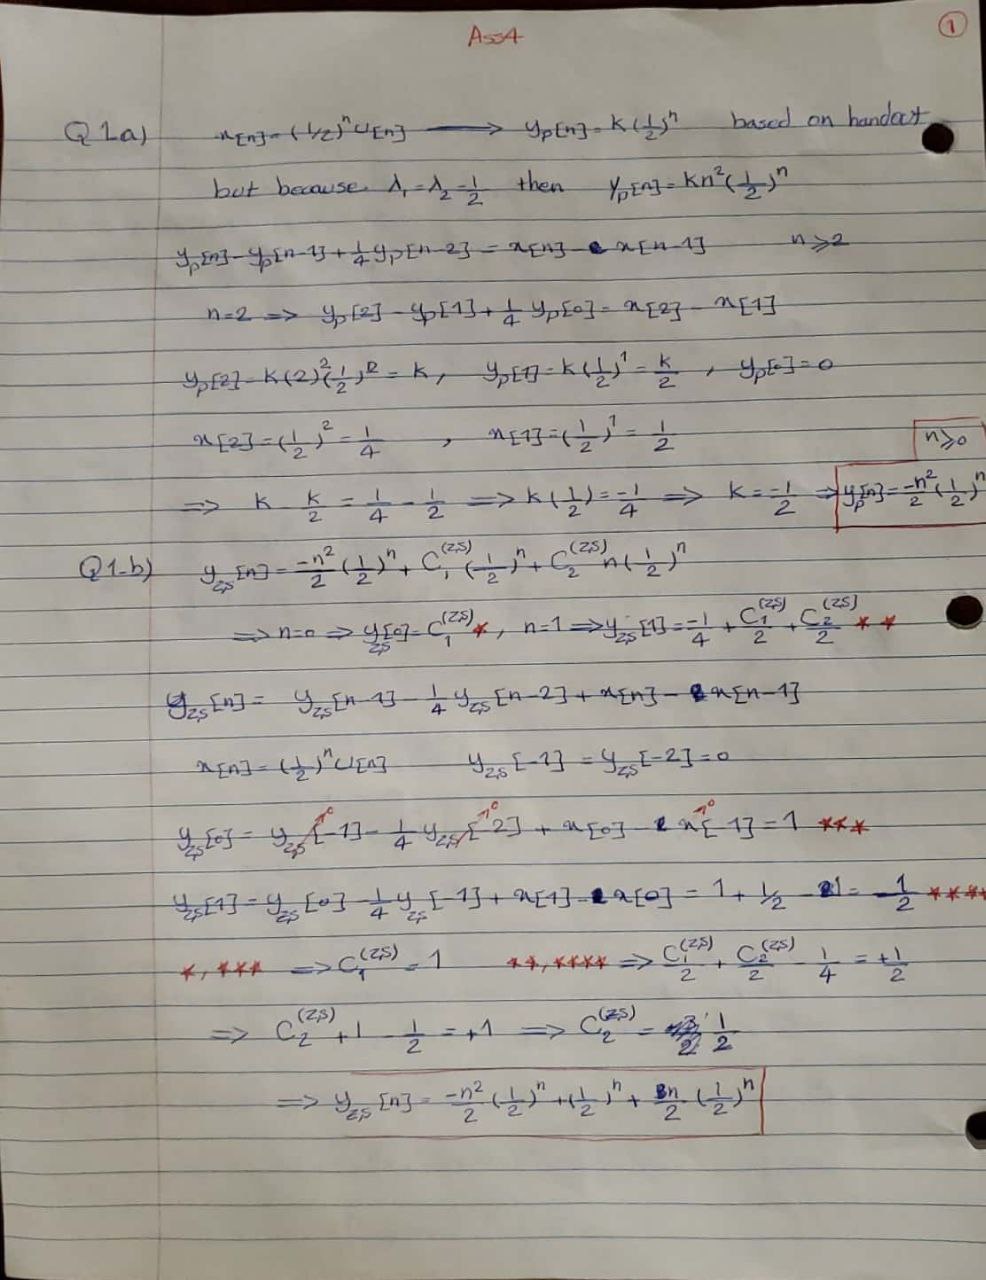 Ass4
①
Q1a) x[n]=(1/2)^n U[n] ⟶ y_p[n]=k(1/2)^n based on handout
but because λ₁=λ₂=1/2 then y_p[n]=kn²(1/2)^n
y_p[n]-y_p[n-1]+1/4 y_p[n-2]=x[n]-x[n-1] n≥2
n=2 ⇒ y_p[2]-y_p[1]+1/4 y_p[0]=x[2]-x[1]
y_p[2]=k(2)²(1/2)²=k, y_p[1]=k(1/2)^1=k/2, y_p[0]=0
x[2]=(1/2)²=1/4, x[1]=(1/2)^1=1/2
n≥0
⇒ k-k/2=1/4-1/2 ⇒ k(1/2)=-1/4 ⇒ k=-1/2 ⇒ y_p[n]=-n²/2 (1/2)^n
Q1-b) y_zs[n]=-n²/2 (1/2)^n + C₁^(zs) (1/2)^n + C₂^(zs) n(1/2)^n
⇒ n=0 ⇒ y_zs[0]=C₁^(zs) *, n=1 ⇒ y_zs[1]=-1/4 + C₁^(zs)/2 + C₂^(zs)/2 **
y_zs[n]= y_zs[n-1]-1/4 y_zs[n-2]+x[n]-x[n-1]
x[n]=(1/2)^n U[n] y_zs[-1]=y_zs[-2]=0
y_zs[0]=y_zs[-1]→0 -1/4 y_zs[-2]→0 + x[0]-x[-1]→0 =1 ***
y_zs[1]=y_zs[0]-1/4 y_zs[-1]+x[1]-x[0]=1+1/2-1=1/2 ****
*,*** ⇒ C₁^(zs)=1 **,**** ⇒ C₁^(zs)/2 + C₂^(zs)/2 - 1/4 = +1/2
⇒ C₂^(zs)+1-1/2=+1 ⇒ C₂^(zs)= 1/2
⇒ y_zs[n]=-n²/2 (1/2)^n+(1/2)^n+ n/2 (1/2)^n